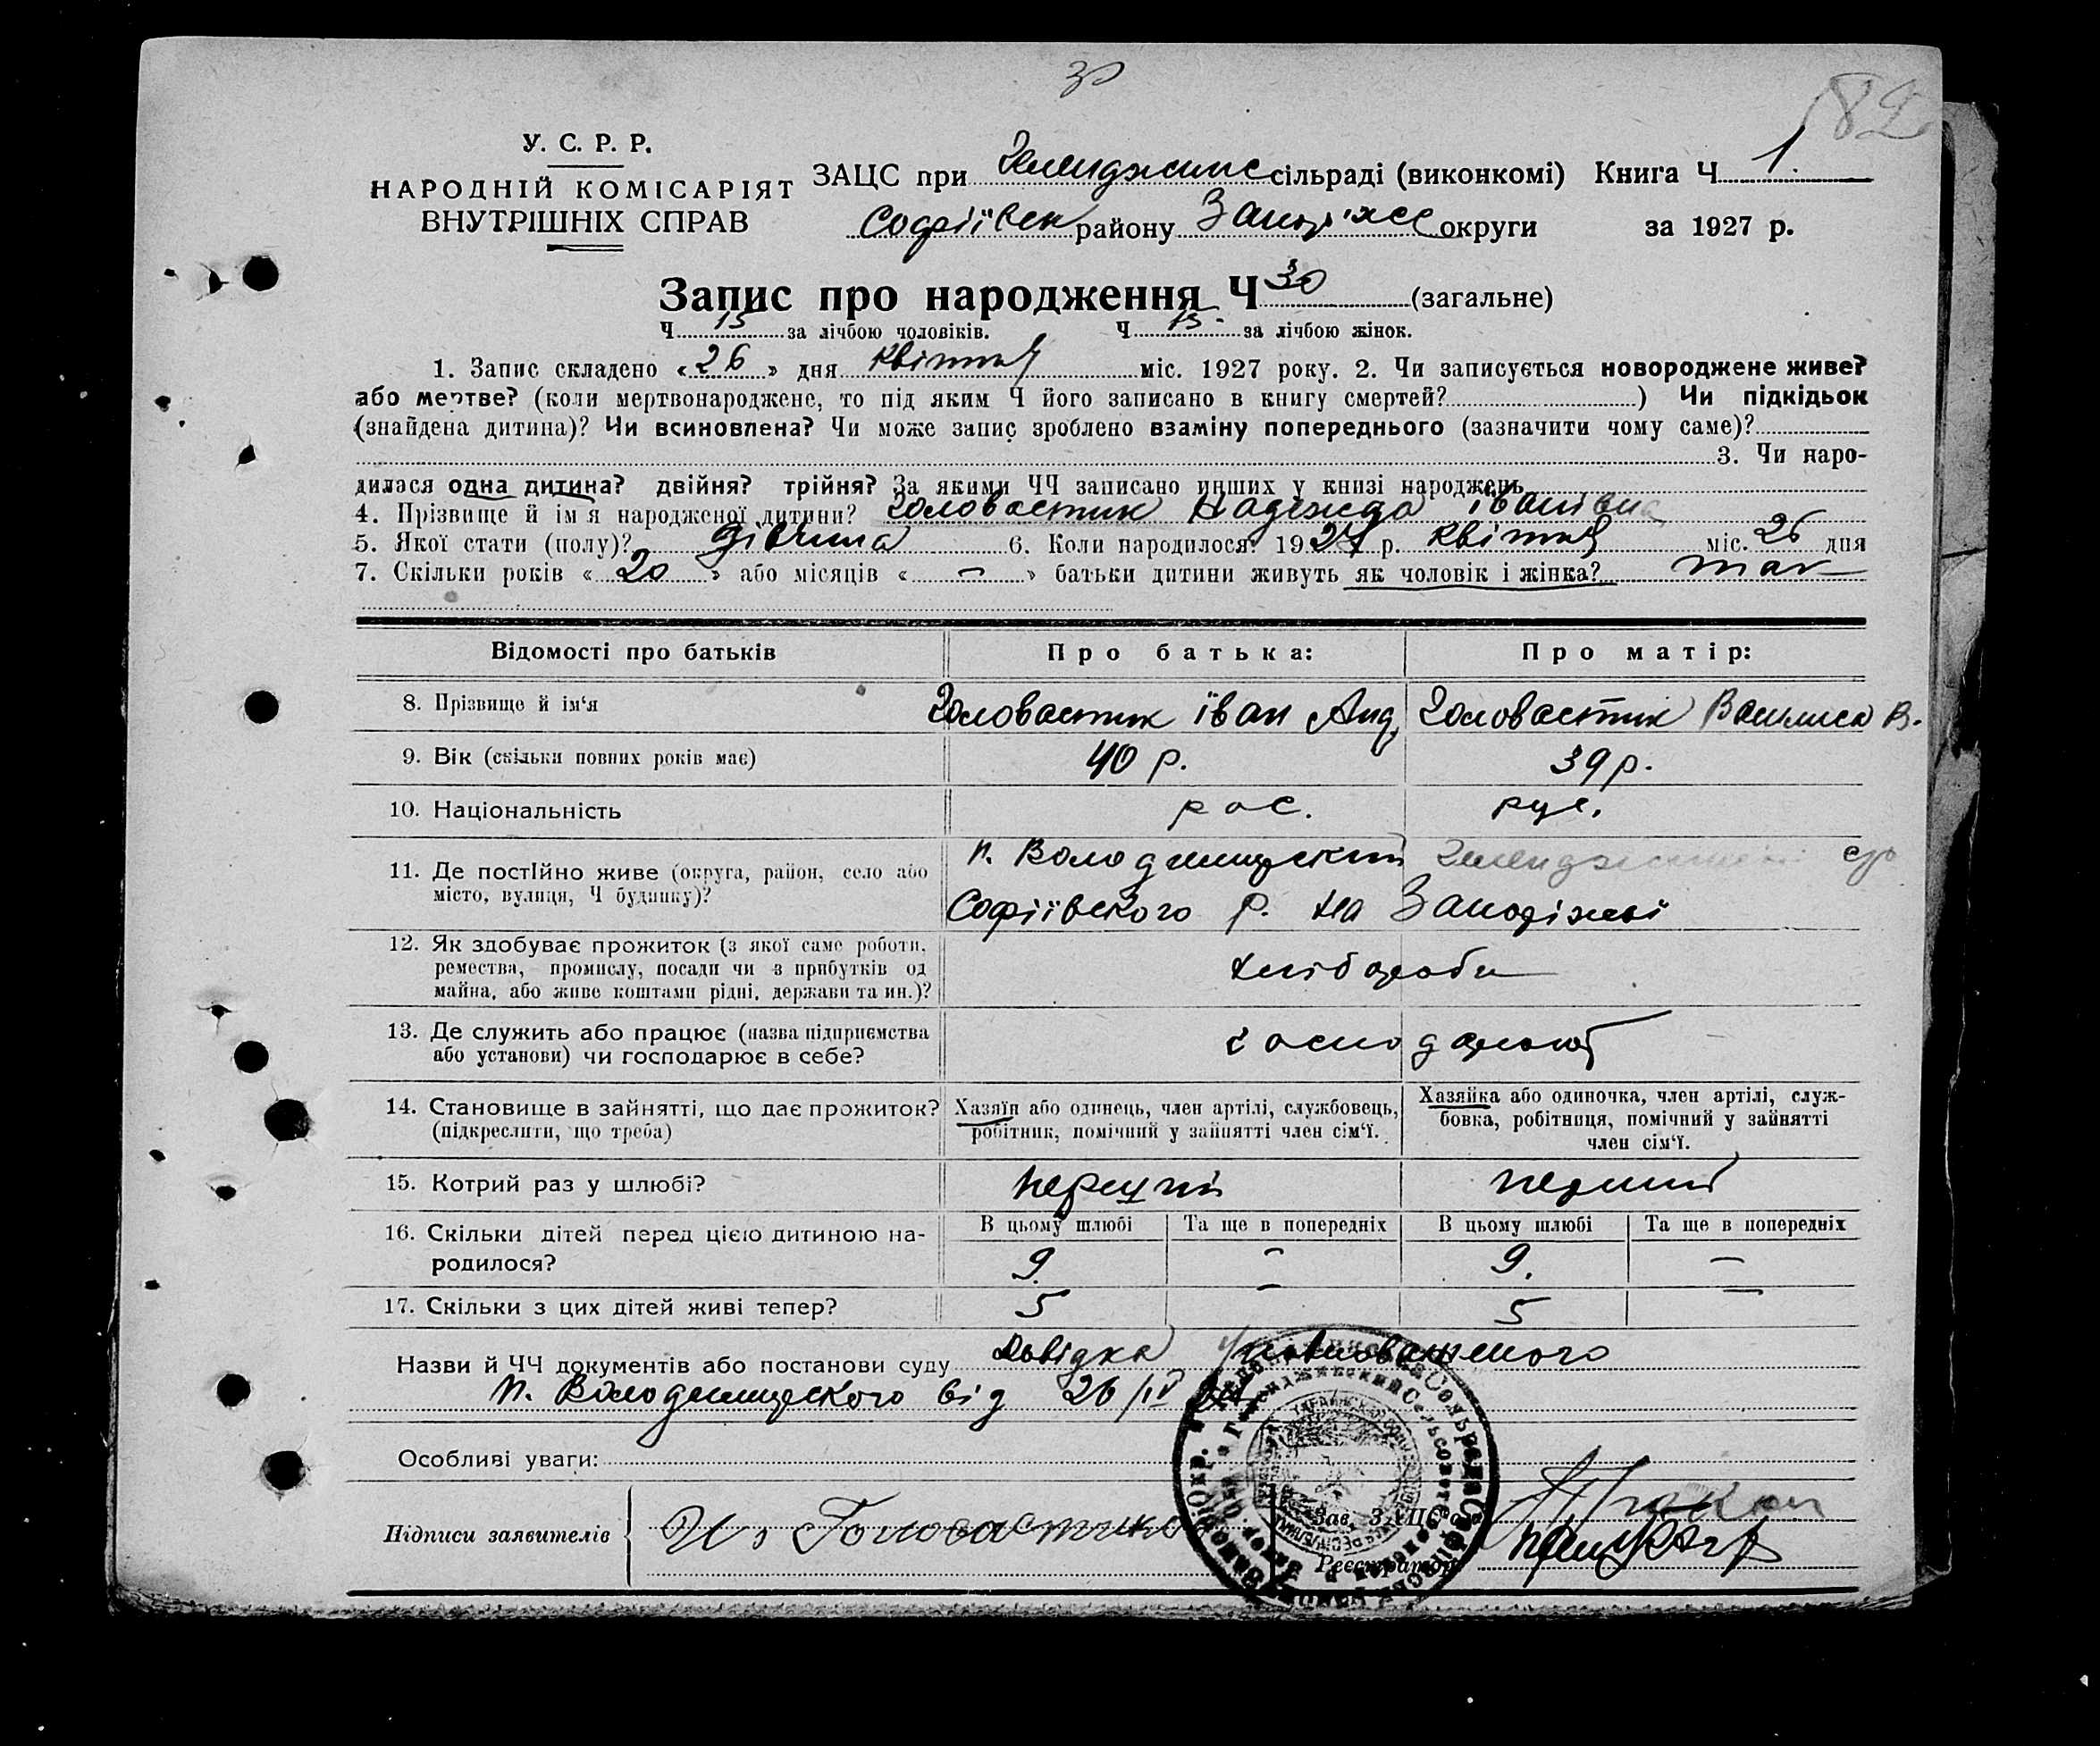 30
82
У. С. Р. Р.
НАРОДНІЙ КОМІСАРІЯТ
ВНУТРІШНІХ СПРАВ
ЗАЦС при сільраді (виконкомі) Книга Ч 1.
Софіївск району Запоріжс округи за 1927 р.
Запис про народження Ч 30 (загальне)
Ч 15 за лічбою чоловіків. Ч 15 за лічбою жінок.
1. Запис складено « 26 » дня квітня міс. 1927 року. 2. Чи записується новороджене живе?
або мертве? (коли мертвонароджене, то під яким Ч його записано в книгу смертей? ) Чи підкідьок
(знайдена дитина)? Чи всиновлена? Чи може запис зроблено взаміну попереднього (зазначити чому саме)?
3. Чи наро-
дилася одна дитина? двійня? трійня? За якими ЧЧ записано инших у книзі народжень
4. Прізвище й імя народженої дитини? Головастик Надежда Іванівна
5. Якої стати (полу)? дівчина 6. Коли народилося? 1927 р. квітня міс. 26 дня
7. Скільки років « 20 » або місяців « – » батьки дитини живуть як чоловік і жінка? так
Відомості про батьків Про батька: Про матір:
8. Прізвище й ім'я Головастик Іван Анд. Головастик Василиса В.
9. Вік (скільки повних років має) 40 р. 39 р.
10. Національність рос. рус.
11. Де постійно живе (округа, район, село або
місто, вулиця, Ч будинку)?
Софіївского р. на Запоріжжі
12. Як здобуває прожиток (з якої саме роботи,
ремества, промислу, посади чи з прибутків од
майна, або живе коштами рідні, держави та ин.)?
хлібороби
13. Де служить або працює (назва підприємства
або установи) чи господарює в себе?
господарюють
14. Становище в зайнятті, що дає прожиток?
(підкреслити, що треба)
Хазяїн або одинець, член артілі, службовець,
робітник, помічний у зайнятті член сім'ї.
Хазяйка або одиночка, член артілі, служ-
бовка, робітниця, помічний у зайнятті
член сім'ї.
15. Котрий раз у шлюбі? перший перший
16. Скільки дітей перед цією дитиною на-
родилося?
В цьому шлюбі Та ще в попередніх В цьому шлюбі Та ще в попередніх
9 – 9. –
17. Скільки з цих дітей живі тепер? 5 – 5 –
Назви й ЧЧ документів або постанови суду Довідка уповноваженого
від 26/IV 27
Особливі уваги:
Підписи заявителів И. Головастиков
Зав. ЗАЦС'у
Реєстратор